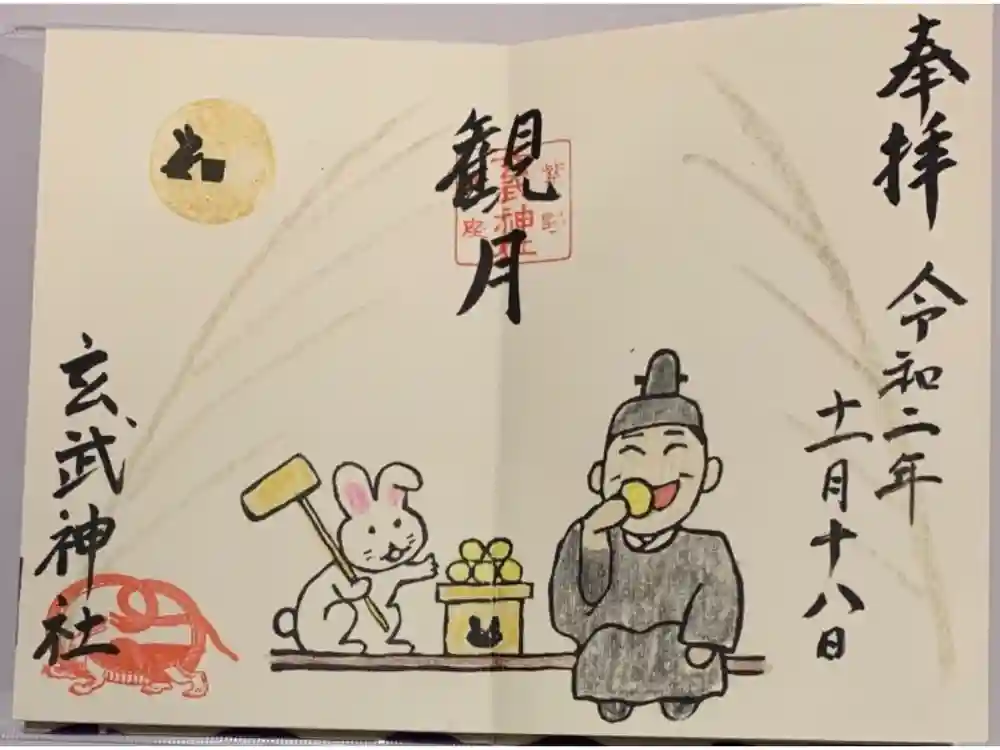 奉拝
令和二年
十一月十八日
観月
玄武神社
玄武神社